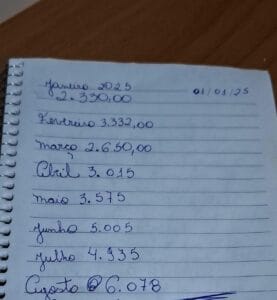 Janeiro 2025
01/01/25
2.330,00
Fevereiro 3.332,00
março 2.650,00
Abril 3.015
maio 3.575
junho 5.005
julho 4.935
Agosto 6.078